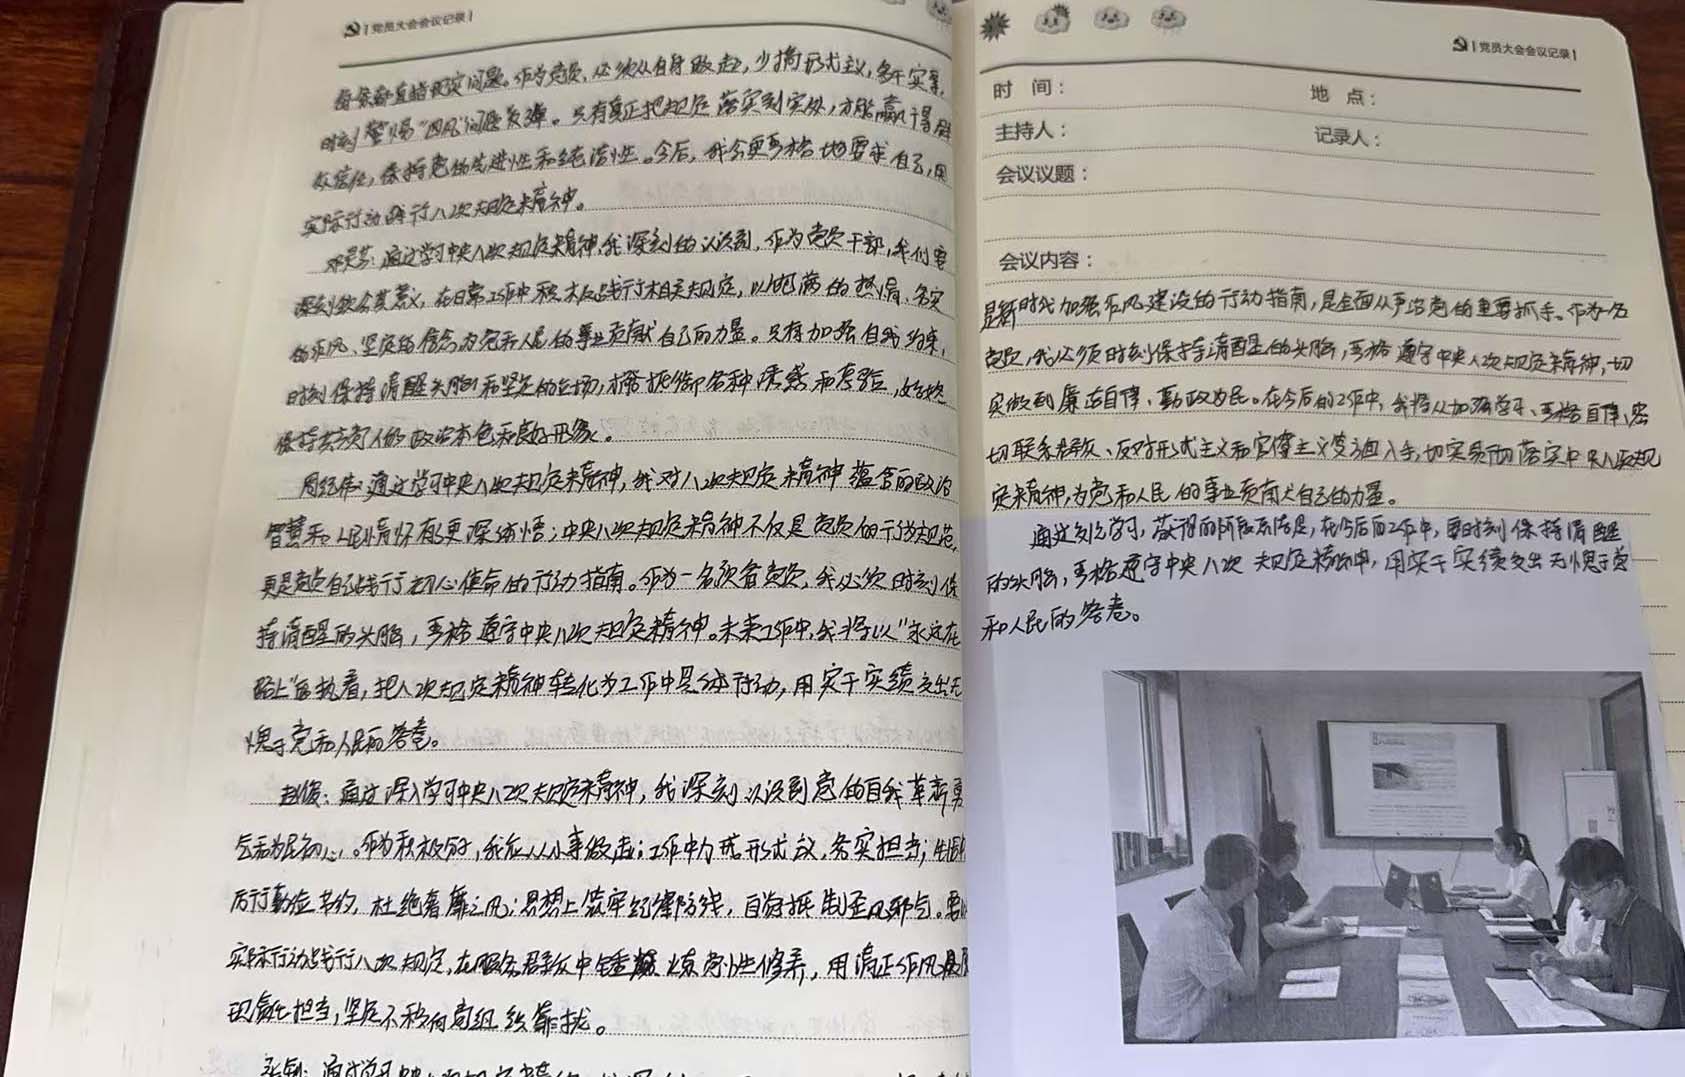 党员大会会议记录
每条都直指现实问题。作为党员,必须从自身做起,少搞形式主义,多干实事,
时刻警惕“四风”问题反弹。只有真正把规定落实到实处,才能赢得群
众信任,保持党的先进性和纯洁性。今后,我会更严格地要求自己,用
实际行动践行八项规定精神。
通过学习中央八项规定精神,我深刻的认识到,作为党员干部,我们要
深刻领会其意义,在日常工作中积极践行相关规定,以饱满的热情、务实
的作风、坚定的信念为党和人民的事业贡献自己的力量。只有加强自我约束,
时刻保持清醒头脑和坚定的立场,才能抵御各种诱惑和考验,始终
保持共产党人的政治本色和良好形象。
周经伟:通过学习中央八项规定精神,我对八项规定精神蕴含的政治
智慧和人民情怀有了更深体悟;中央八项规定精神不仅是党员的行为规范,
更是党员自己践行初心使命的行动指南。作为一名预备党员,我必须时刻保
持清醒的头脑,严格遵守中央八项规定精神。未来工作中,我将以“永远在
路上”的执着,把八项规定精神转化为工作中具体行动,用实干实绩交出无
愧于党和人民的答卷。
赵俊:通过深入学习中央八项规定精神,我深刻认识到党的自我革新勇
气和为民初心。作为积极分子,我应从小事做起;工作中力戒形式主义,务实担当;生活中
厉行勤俭节约,杜绝奢靡之风;思想上筑牢纪律防线,自觉抵制歪风邪气。要以
实际行动践行八项规定,在服务群众中锤炼党性修养,用清正作风展
现责任担当,坚定不移向党组织靠拢。
通过学习中央八项规定精神
党员大会会议记录
时 间:
地 点:
主持人:
记录人:
会议议题:
会议内容:
是新时代加强作风建设的行动指南,是全面从严治党的重要抓手。作为一名
党员,我必须时刻保持清醒的头脑,严格遵守中央八项规定精神,切
实做到廉洁自律、勤政为民。在今后的工作中,我将从加强学习、严格自律、密
切联系群众、反对形式主义和官僚主义等方面入手,切实贯彻落实中央八项规
定精神,为党和人民的事业贡献自己的力量。
通过学习,在今后的工作中,要时刻保持清醒
的头脑,严格遵守中央八项规定精神,用实干实绩交出无愧于党
和人民的答卷。